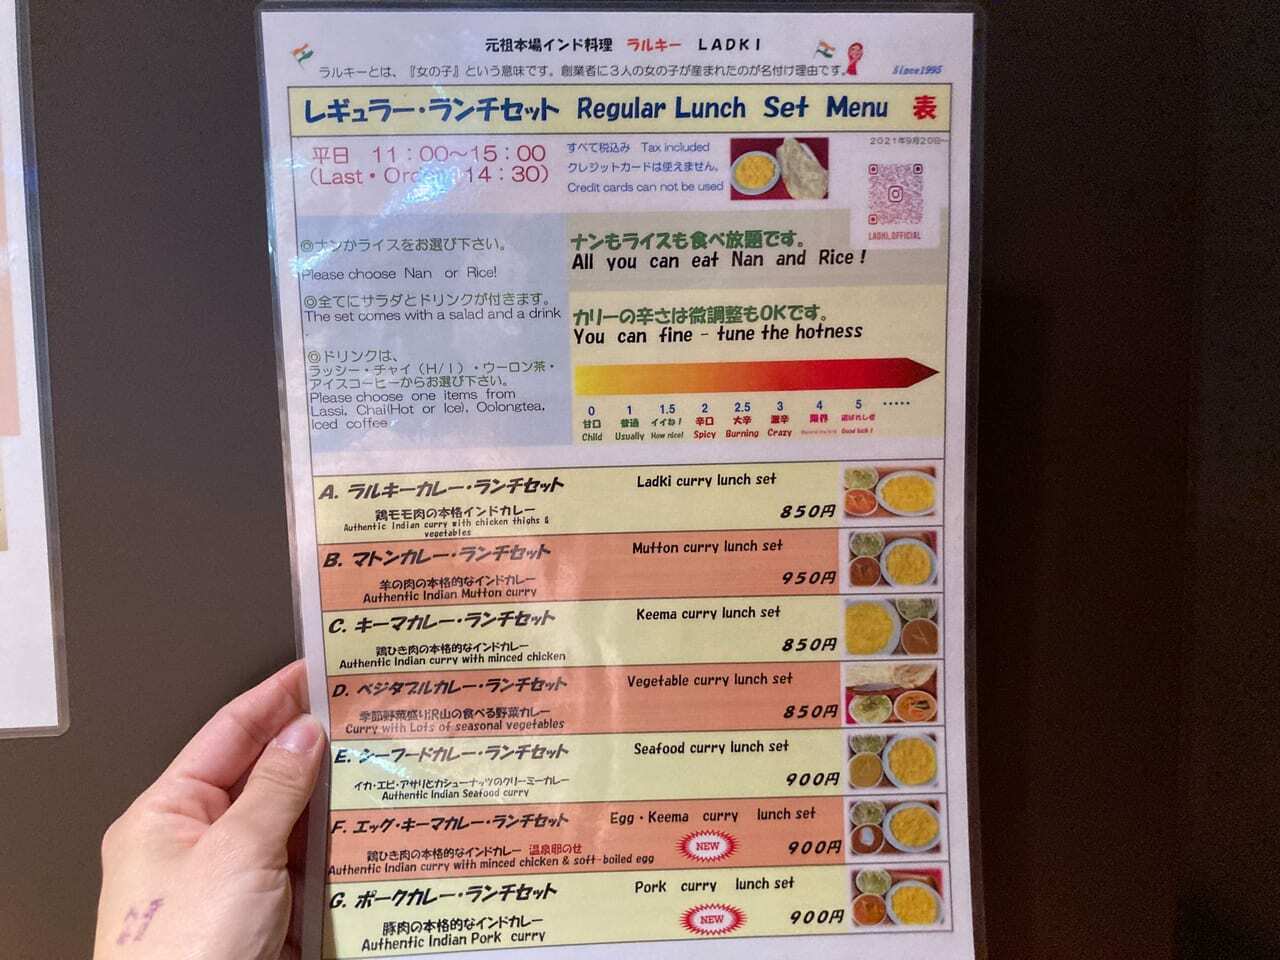 元祖本場インド料理 ラルキー LADKI
ラルキーとは、『女の子』という意味です。創業者に3人の女の子が産まれたのが名付け理由です。
Since1995
レギュラー・ランチセット Regular Lunch Set Menu 表
2021年9月20日~
平日 11:00~15:00
(Last・Order 14:30)
すべて税込み Tax included
クレジットカードは使えません。
Credit cards can not be used
LADKI_OFFICIAL
◎ナンかライスをお選び下さい。
Please choose Nan or Rice!
◎全てにサラダとドリンクが付きます。
The set comes with a salad and a drink
.
◎ドリンクは、
ラッシー・チャイ(H/I)・ウーロン茶・
アイスコーヒーからお選び下さい。
Please choose one items from
Lassi, Chai(Hot or Ice), Oolongtea,
Iced coffee
ナンもライスも食べ放題です。
All you can eat Nan and Rice!
カリーの辛さは微調整もOKです。
You can fine - tune the hotness
0 1 1.5 2 2.5 3 4 5 ・・・・・
甘口 普通 イイね! 辛口 大辛 激辛 限界
Child Usually How nice! Spicy Burning Crazy Good luck!
A. ラルキーカレー・ランチセット Ladki curry lunch set
鶏モモ肉の本格インドカレー 850円
Authentic Indian curry with chicken thighs &
vegetables
B. マトンカレー・ランチセット Mutton curry lunch set
羊の肉の本格的なインドカレー 950円
Authentic Indian Mutton curry
C. キーマカレー・ランチセット Keema curry lunch set
鶏ひき肉の本格的なインドカレー 850円
Authentic Indian curry with minced chicken
D. ベジタブルカレー・ランチセット Vegetable curry lunch set
季節野菜盛り沢山の食べる野菜カレー 850円
Curry with Lots of seasonal vegetables
E. シーフードカレー・ランチセット Seafood curry lunch set
イカ・エビ・アサリとカシューナッツのクリーミーカレー 900円
Authentic Indian Seafood curry
F. エッグ・キーマカレー・ランチセット Egg・Keema curry lunch set
鶏ひき肉の本格的なインドカレー 温泉卵のせ NEW 900円
Authentic Indian curry with minced chicken & soft-boiled egg
G. ポークカレー・ランチセット Pork curry lunch set
豚肉の本格的なインドカレー NEW 900円
Authentic Indian Pork curry